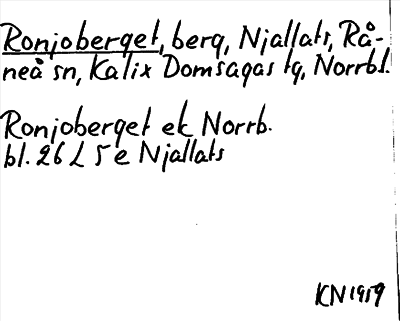 Ronjoberget, berg, Njallats, Rå-
neå sn, Kalix Domsagas tg, Norrbl.
Ronjoberget ek Norrb.
bl. 26 L 5 e Njallats
KN 1959